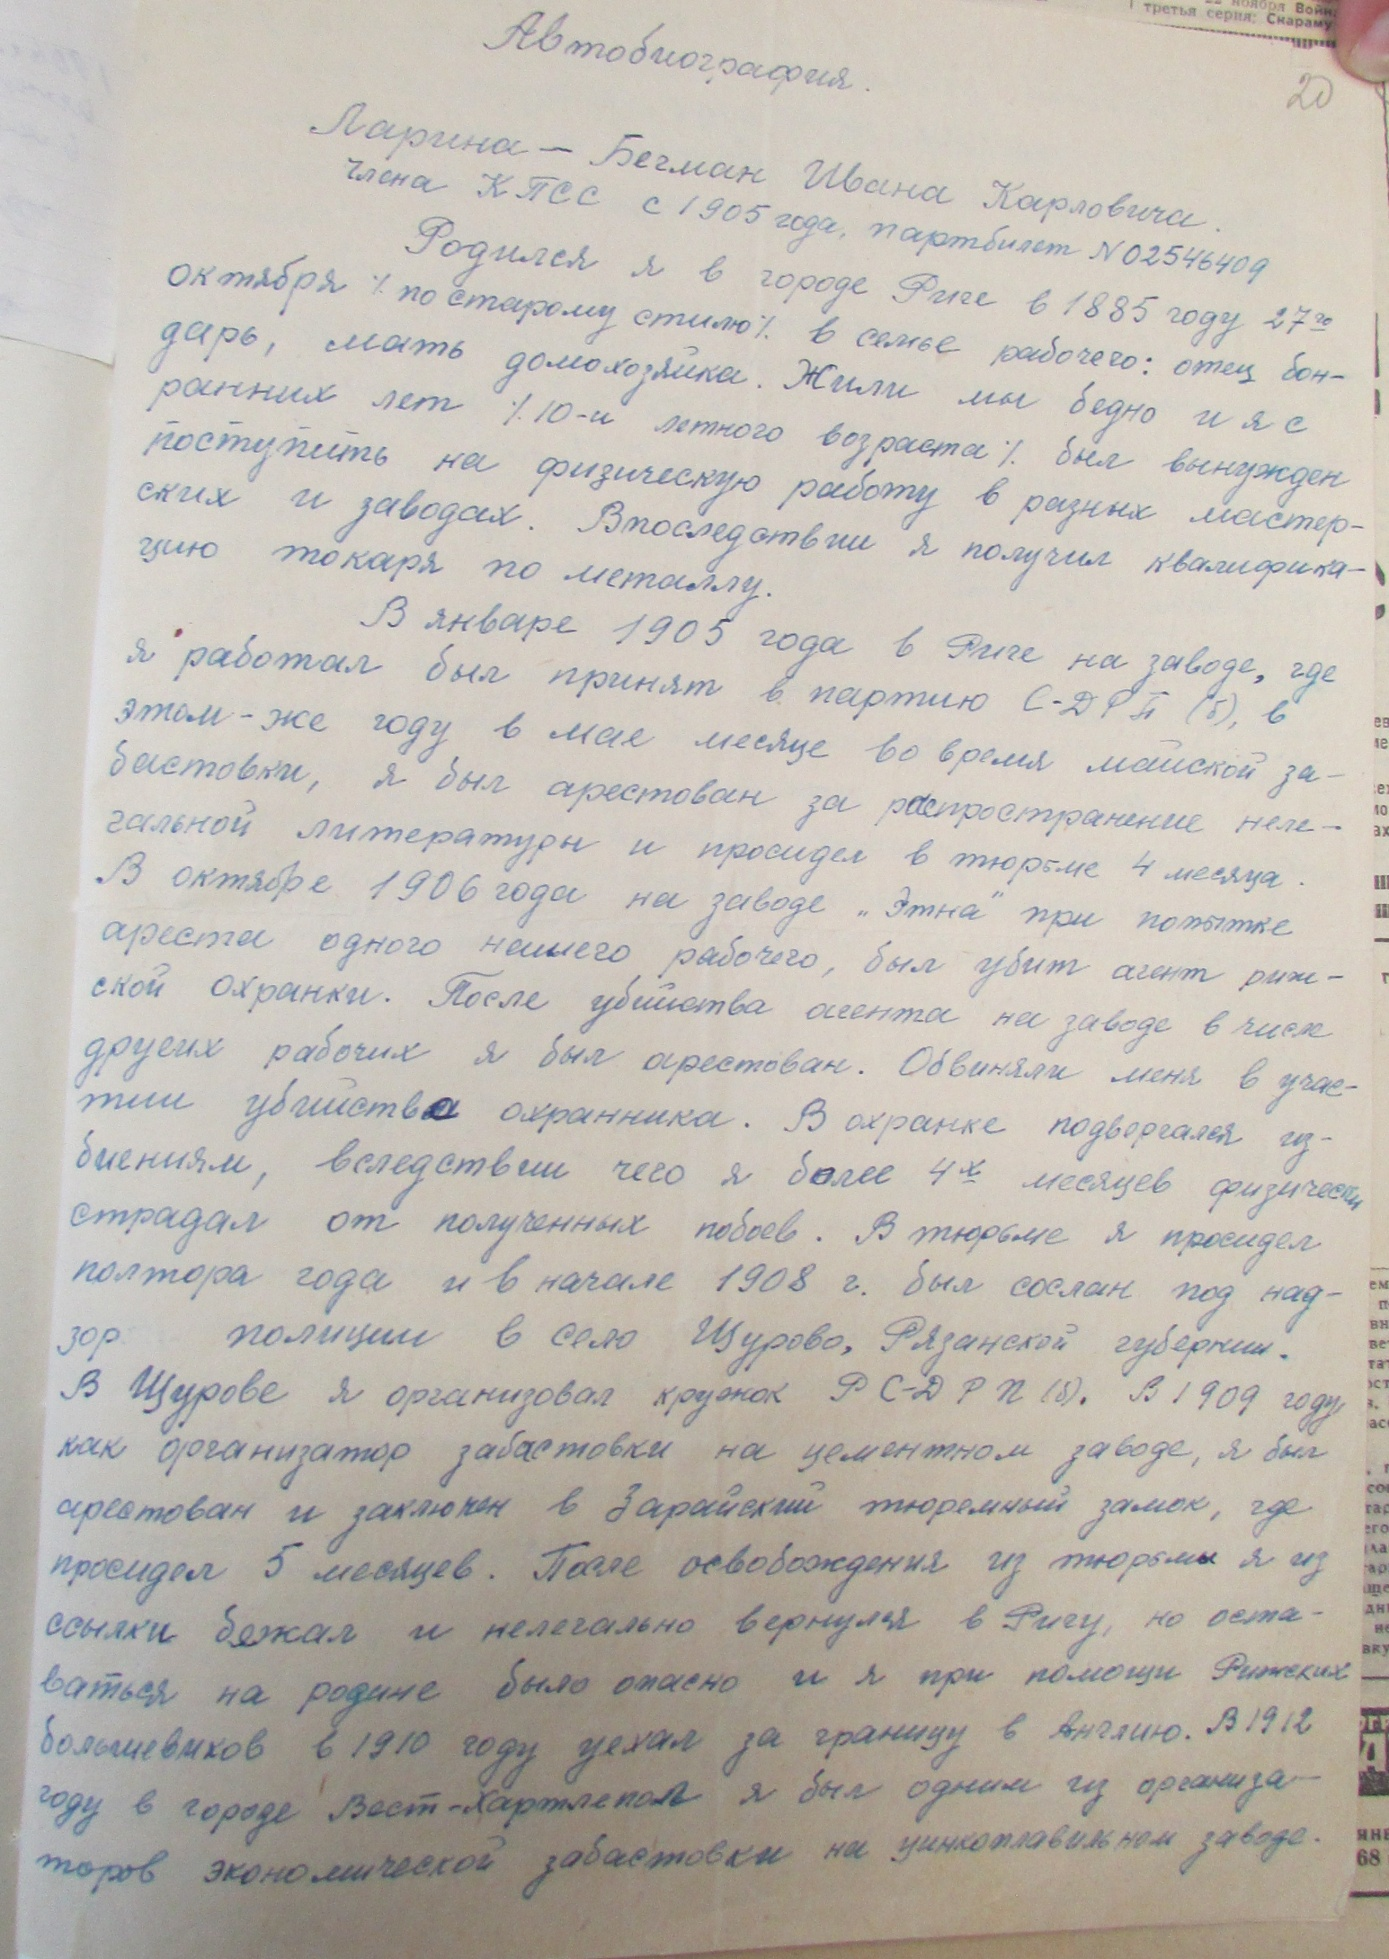 22 ноября Вой
третья серия: Скараму
20
Автобиография.
Ларина – Бегман Ивана Карловича.
члена КПСС с 1905 года, партбилет N02546409
Родился я в городе Риге в 1885 году 27го
октября /. по старому стилю /. в семье рабочего: отец бон-
дарь, мать домохозяйка. Жили мы бедно и я с
ранних лет /. 10-и летного возраста /. был вынужден
поступить на физическую работу в разных мастер-
ских и заводах. Впоследствии я получил квалифика-
цию токаря по металлу.
В январе 1905 года в Риге на заводе, где
я работал был принят в партию С-ДРП (б), в
этом-же году в мае месяце во время майской за-
бастовки, я был арестован за распространение неле-
гальной литературы и просидел в тюрьме 4 месяца.
В октябре 1906 года на заводе „Этна" при попытке
ареста одного нашего рабочего, был убит агент риж-
ской охранки. После убийства агента на заводе в числе
других рабочих я был арестован. Обвиняли меня в учас-
тии убийства охранника. В охранке подвергался из-
биениям, вследствии чего я более 4х месяцев физически
страдал от полученных побоев. В тюрьме я просидел
полтора года и в начале 1908 г. был сослан под над-
зор полиции в село Щурово, Рязанской губернии.
В Щурове я организовал кружок РС-ДРП (б). В 1909 году
как организатор забастовки на цементном заводе, я был
арестован и заключен в Зарайский тюремный замок, где
просидел 5 месяцев. После освобождения из тюрьмы я из
ссылки бежал и нелегально вернулся в Ригу, но оста-
ваться на родине было опасно и я при помощи Рижских
большевиков в 1910 году уехал за границу в Англию. В 1912
году в городе Вест-Хартлепол я был одним из организа-
торов экономической забастовки на цинкоплавильном заводе.